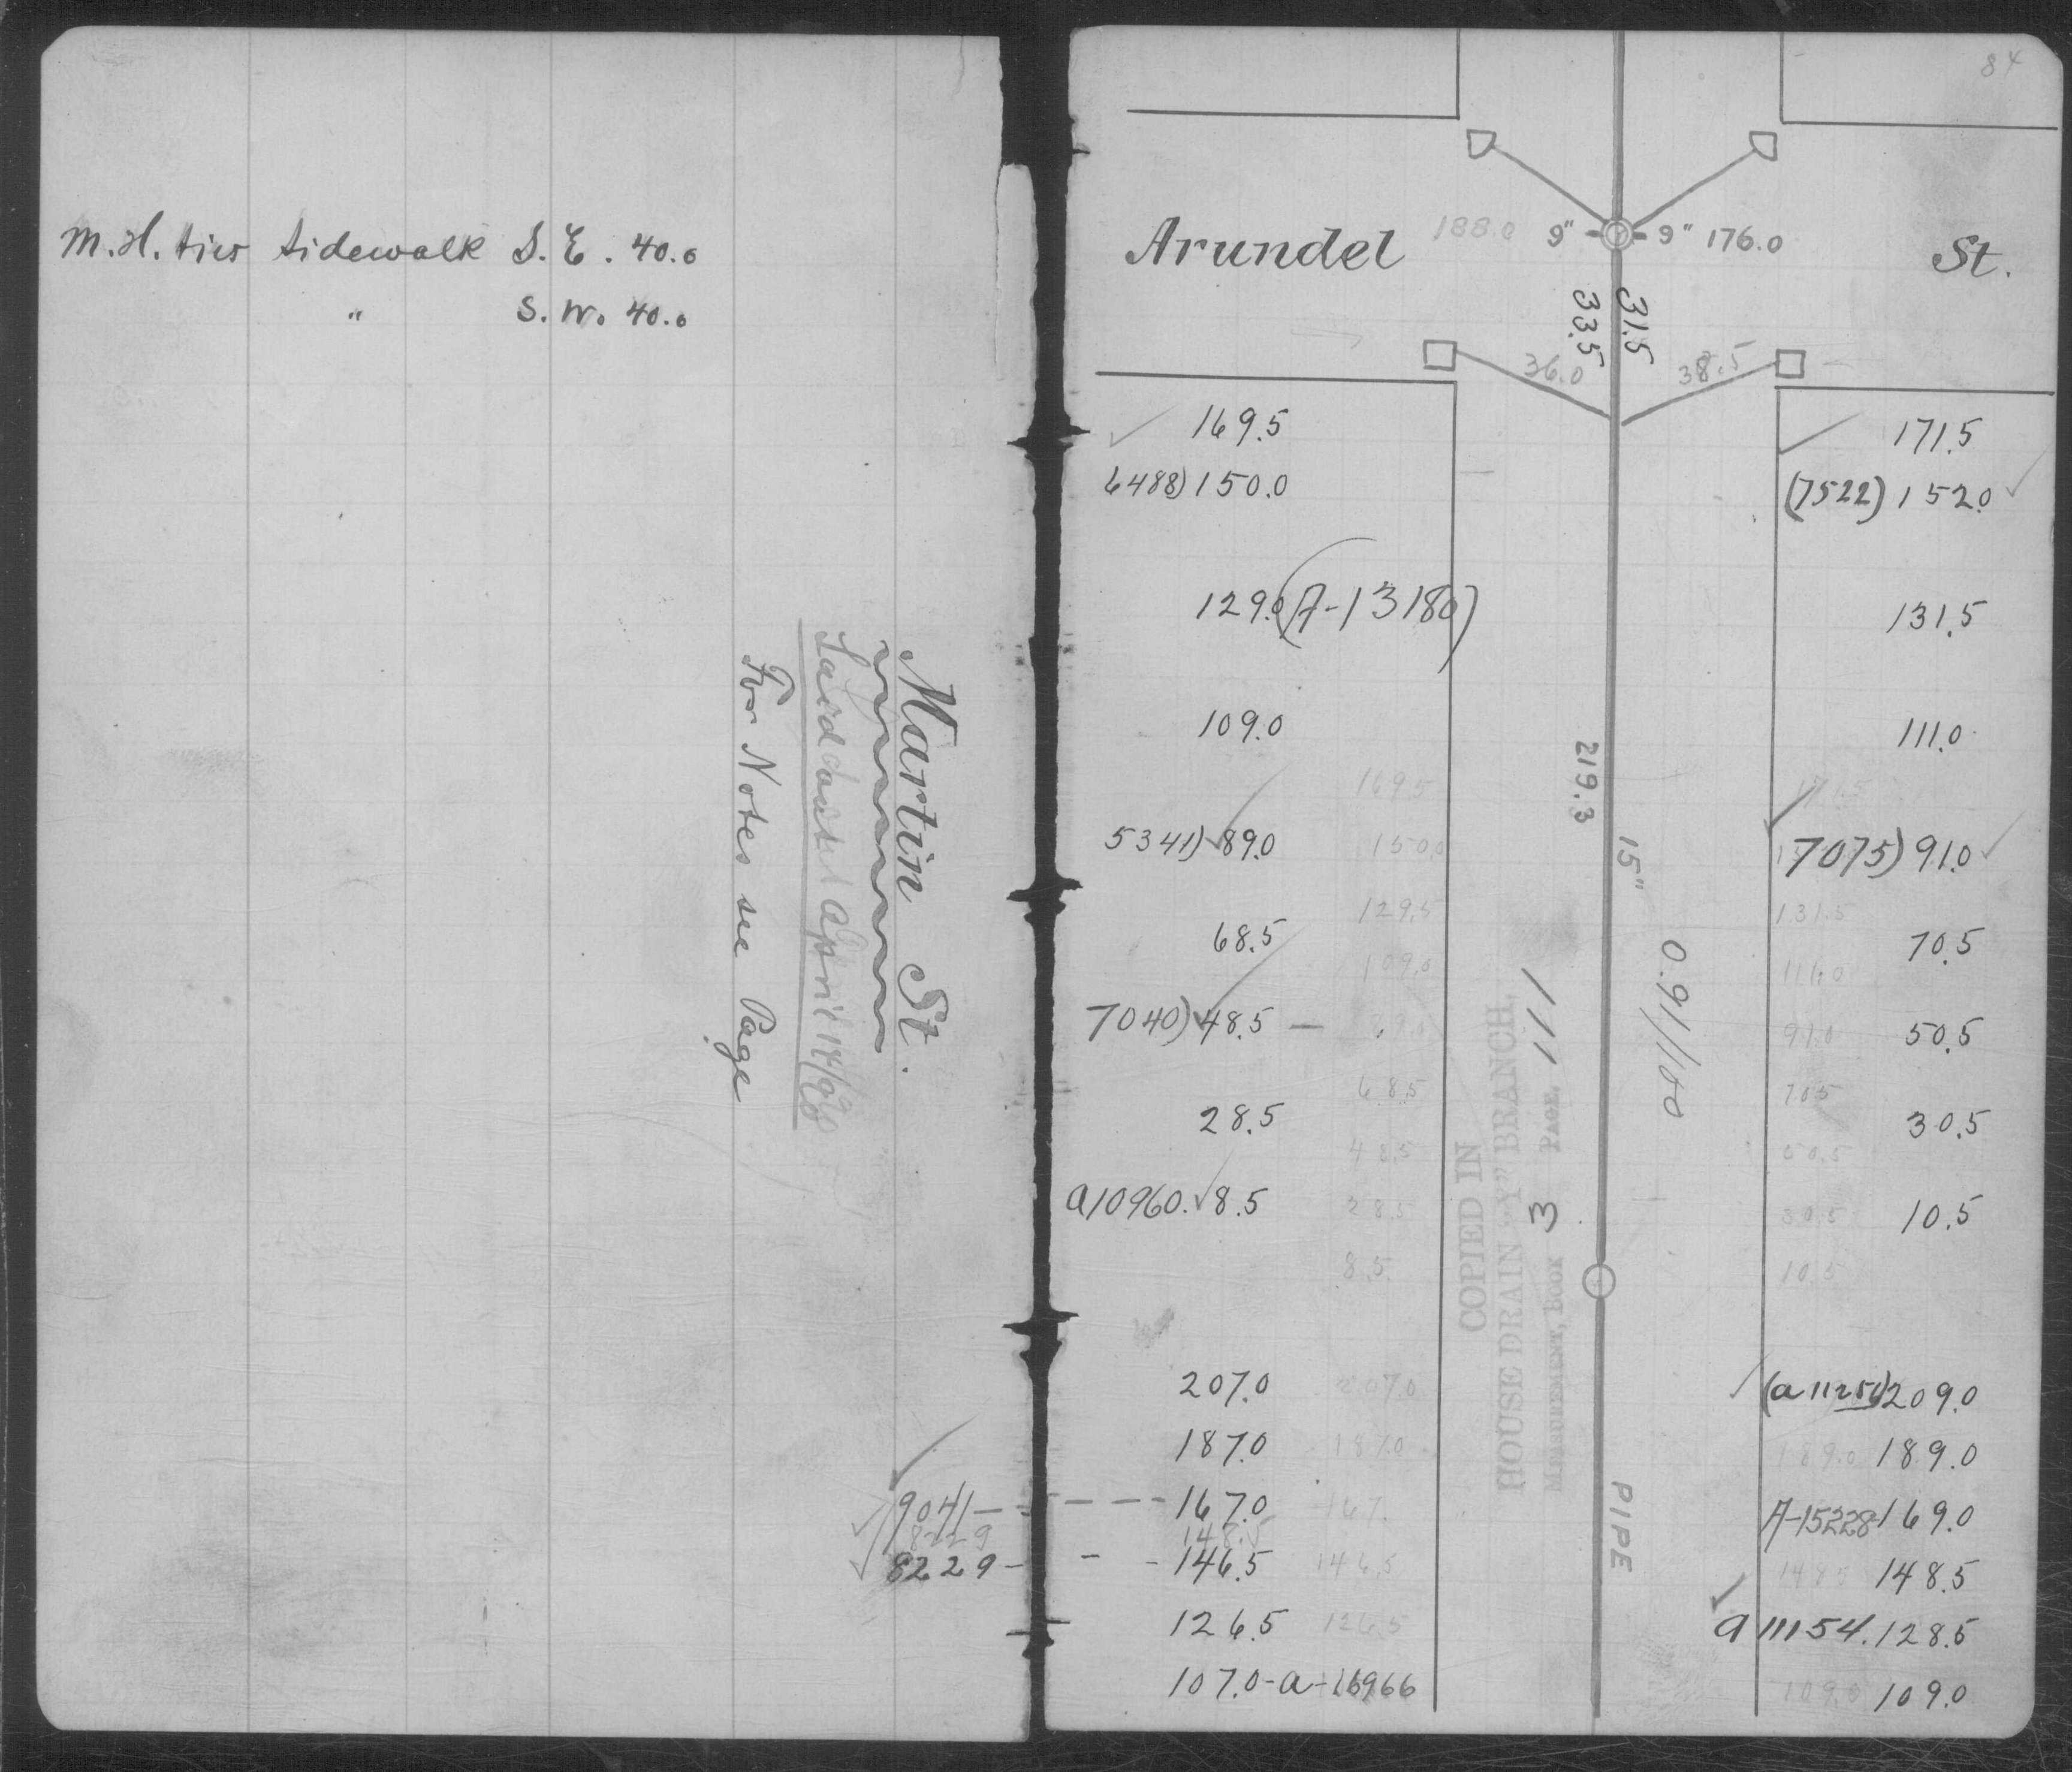 M.H. ties sidewalk S.E. 40.0
" S.W. 40.0
Martin St.
April 14/98
For Notes see Page
9041-
8229
8229-
84
Arundel 188.0 9" 9" 176.0 St.
33.5 31.5
36.0 38.5
169.5 171.5
6488) 150.0 (7522) 152.0
129.0 (A-13180) 131.5
109.0 111.0
219.3
169.5 171.5
5341) 89.0 150.0 15" 7075) 91.0
129.5 131.5
68.5 109.0 70.5
0.91/100
7040) 48.5 91.0 50.5
68.5 70.5
28.5 48.5 50.5 30.5
a10960. 8.5 28.5 30.5 10.5
8.5 10.5
COPIED IN
HOUSE DRAIN "Y" BRANCH,
MEASUREMENT, BOOK 3 PAGE, 111
207.0 207.0 (a 11251) 209.0
187.0 187.0 189.0 189.0
167.0 167. A-15228-169.0
148.5
146.5 146.5 148.5 148.5
PIPE
126.5 126.5 a 11154. 128.5
107.0-a-16966 109.0 109.0